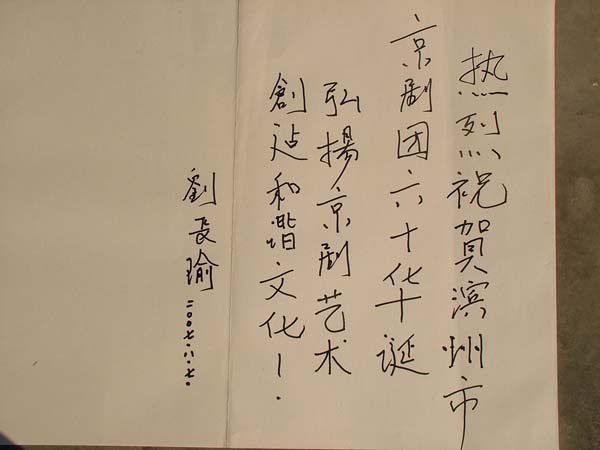 热烈祝贺滨州市
京剧团六十华诞
弘揚京剧艺术
創造和谐文化！
劉長瑜 二〇〇七.八.七.